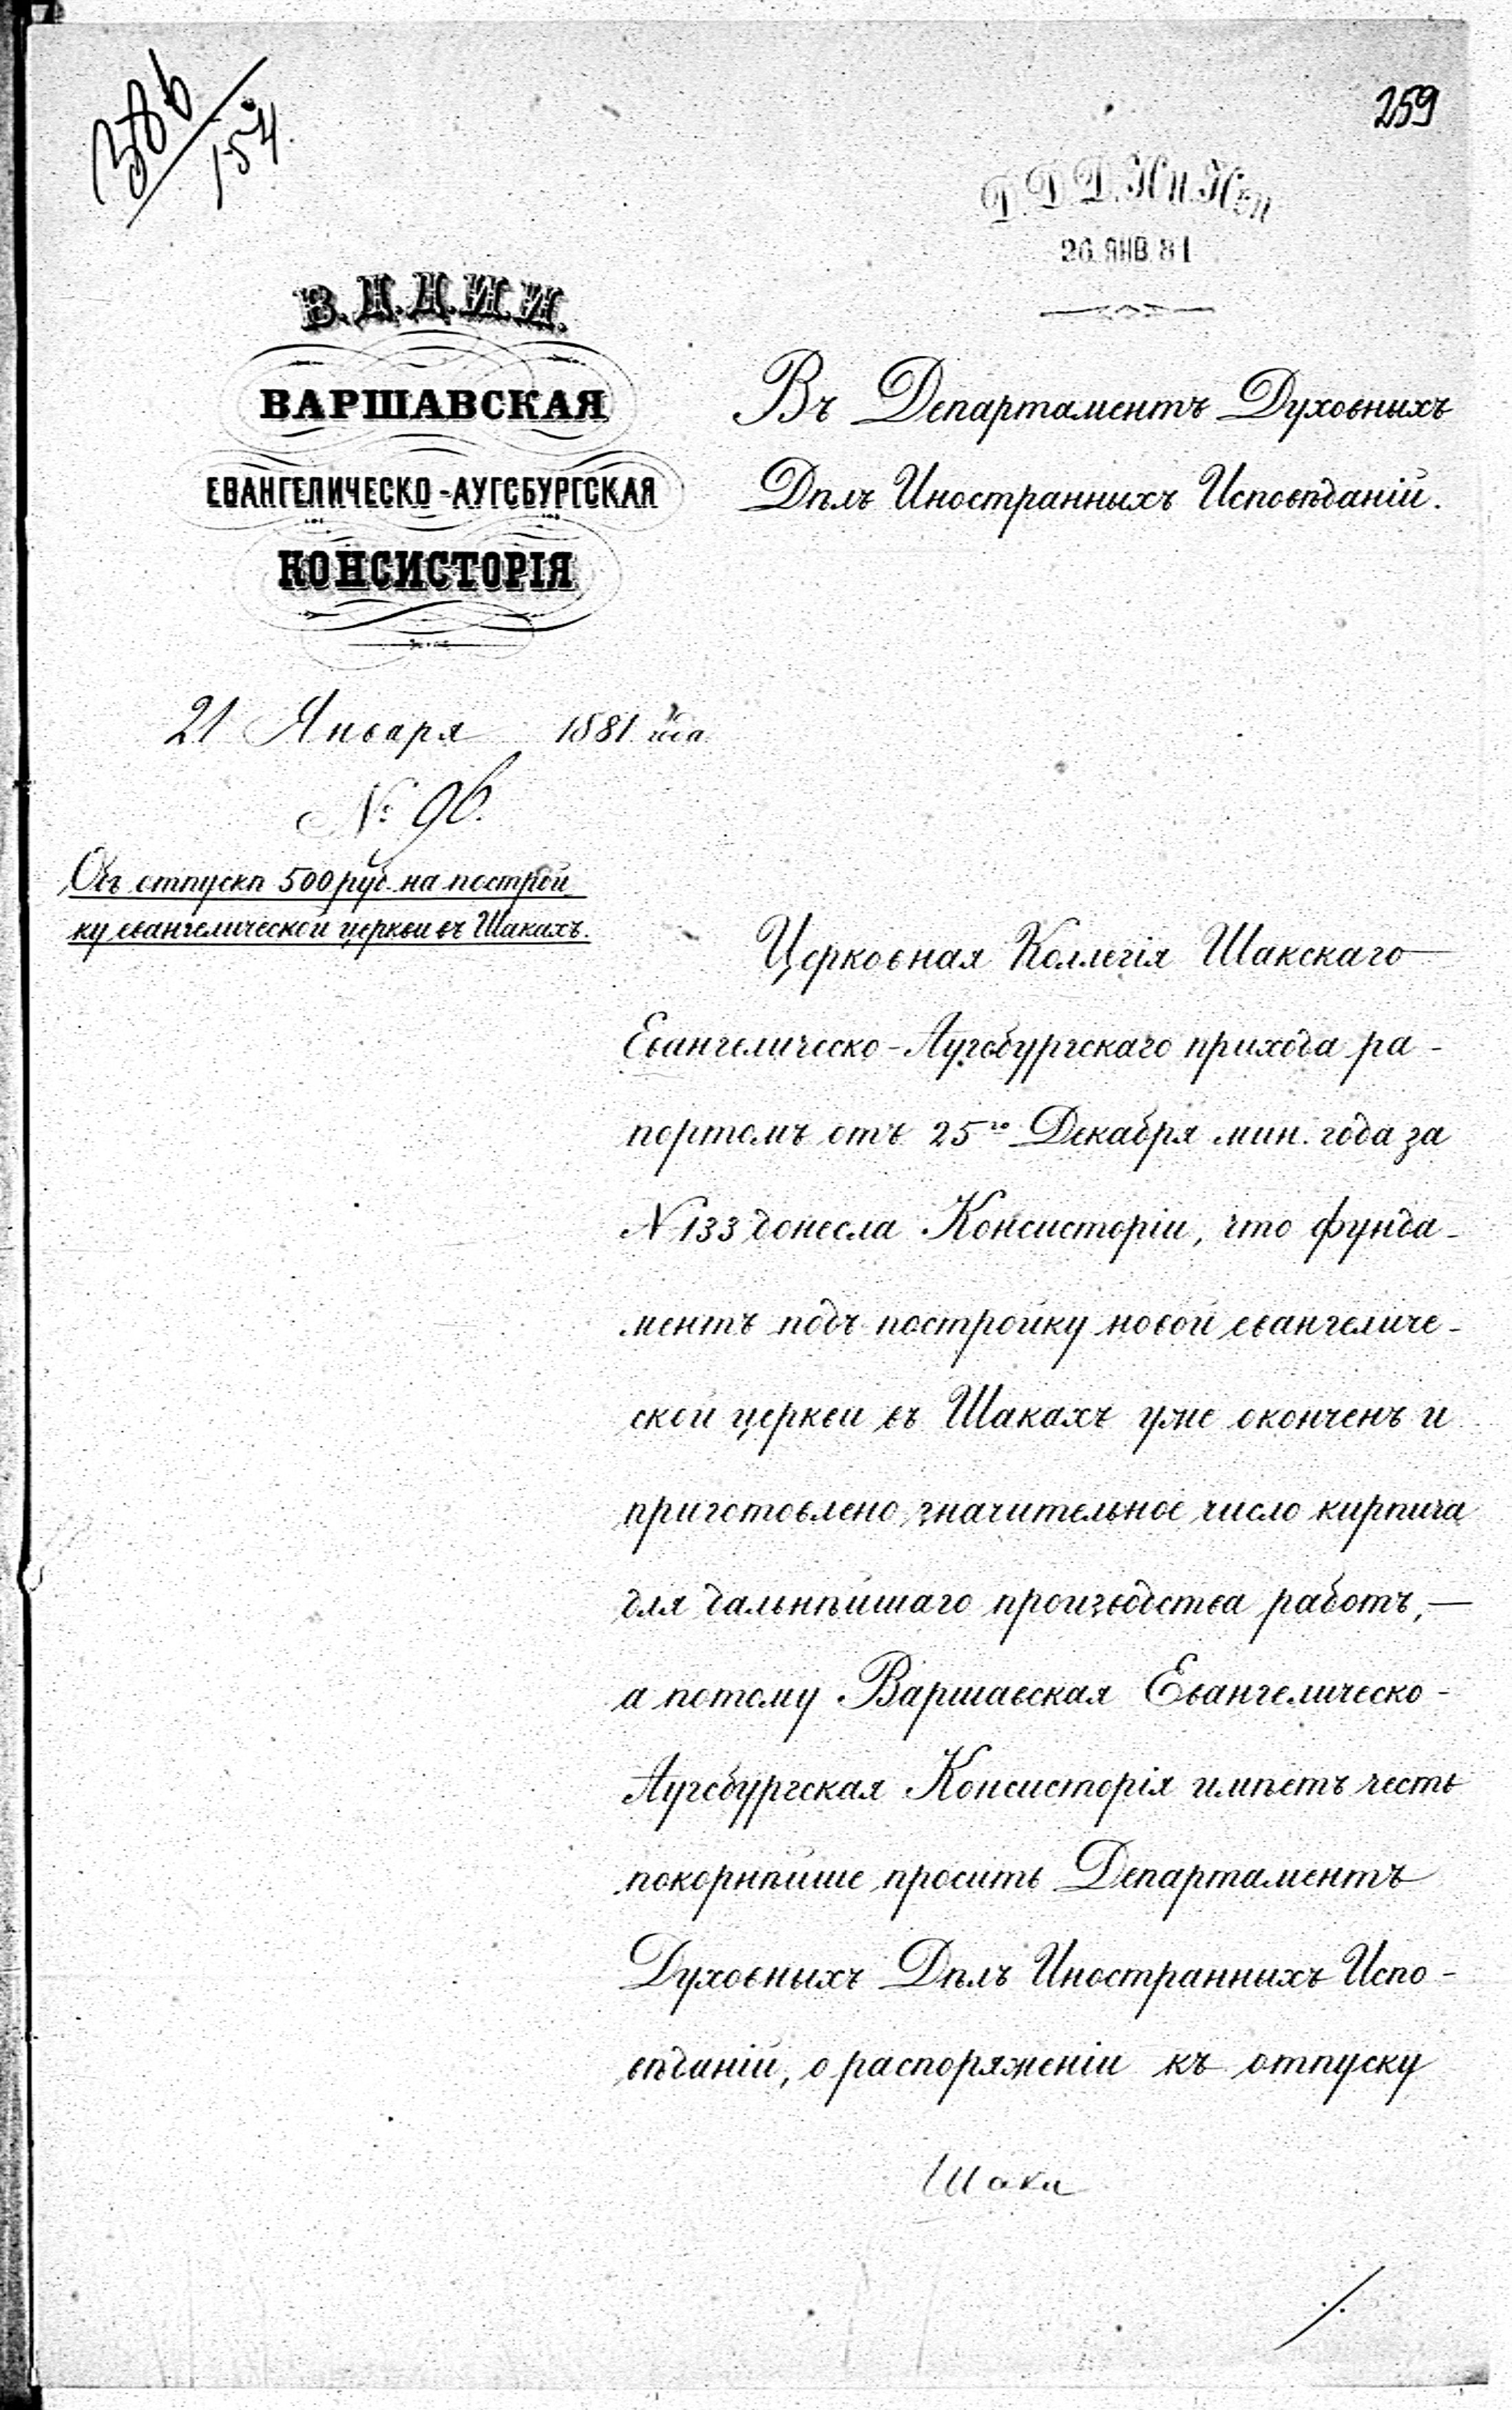 386/154.
259
26 ЯНВ. 81
В. Д. Д. И. И.
ВАРШАВСКАЯ
ЕВАНГЕЛИЧЕСКО-АУГСБУРГСКАЯ
КОНСИСТОРІЯ
Въ Департаментъ Духовныхъ
Дѣлъ Иностранныхъ Исповѣданій.
21 Января 1881 года
№ 96.
Объ отпускѣ 500 руб. на построй-
ку евангелической церкви въ Шакахъ.
Церковная Коллегія Шакскаго
Евангелическо-Аугсбургскаго прихода ра-
портомъ отъ 25го Декабря мин. года за
N 133 донесла Консисторіи, что фунда-
ментъ подъ постройку новой евангеличе-
ской церкви въ Шакахъ уже оконченъ и
приготовлено значительное число кирпича
для дальнѣйшаго производства работъ,—
а потому Варшавская Евангелическо-
Аугсбургская Консисторія имѣетъ честь
покорнѣйше просить Департаментъ
Духовныхъ Дѣлъ Иностранныхъ Испо-
вѣданій, о распоряженіи къ отпуску
Шаки